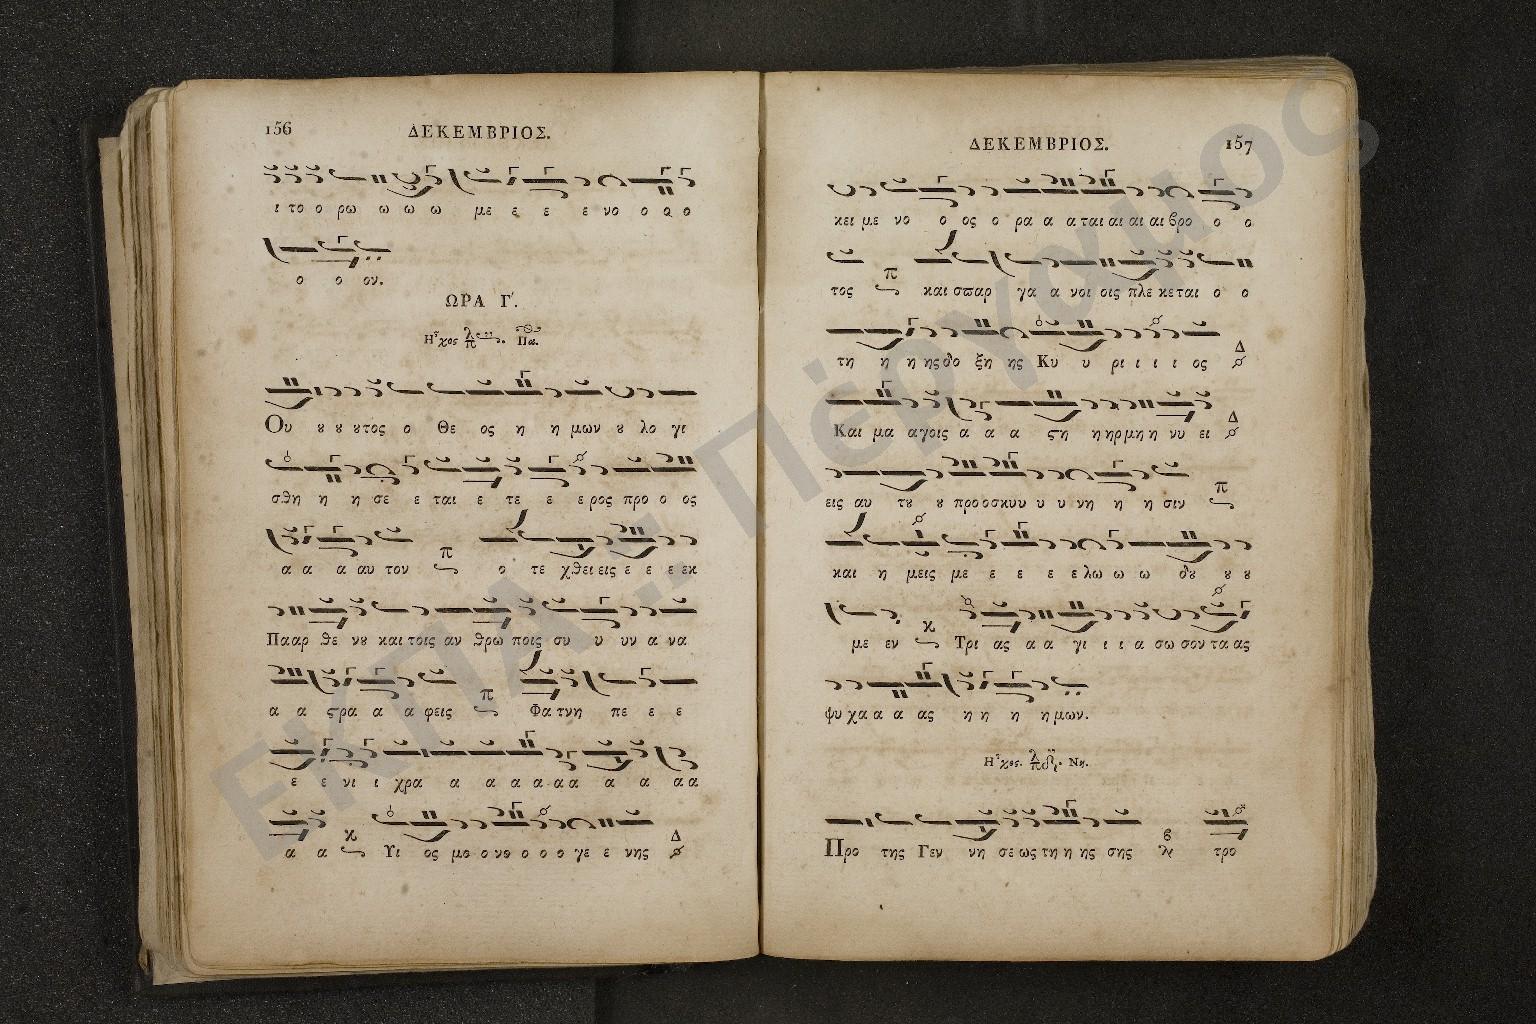 156
ΔΕΚΕΜΒΡΙΟΣ.
ι το ο ρω ω ω ω με ε ε ε νο ο ο ο
ο ο ον.
ΩΡΑ Γ΄.
Ἦχος Πα.
Ου ȣ ȣ ȣτος ο Θε ος η η μων ȣ λο γι
σθη η η σε ε ται ε τε ε ε ρος προ ο ος
α α α αυ τον π ο τε χθει εις ε ε ε εκ
Πααρ θε νȣ και τοις αν θρω ποις συ υ υν α να
α α ϛρα α α φεις π Φα τνη πε ε ε
ε ε νι ι χρα α α α α α α α α α α
α α κ Υι ος μο ο νο ο ο ο γε ε νης Δ
ΔΕΚΕΜΒΡΙΟΣ.
157
κει με νο ο ος ο ρα α α ται αι αι αι βρο ο ο
τος π και σπαρ γα α νοι οις πλε κεται ο ο
τη η η ης δο ξη ης Κυ υ ρι ι ι ι ος Δ
Και μα αγοις α α α ϛη η ηρμη η νυ ει Δ
εις αυ τȣ ȣ προ οσκυυ υ υ νη η η σιν π
και η μεις με ε ε ε ε λω ω ω δȣ ȣ ȣ
με εν κ Τρι ας α α γι ι ι α σω σον τα ας
ψυ χα α α ας η η η η μων.
Ἦχος. Νη.
Προ της Γεν νη σε ως τη η ης σης τρο
ΕΚΠΑ :: Πέργαμος